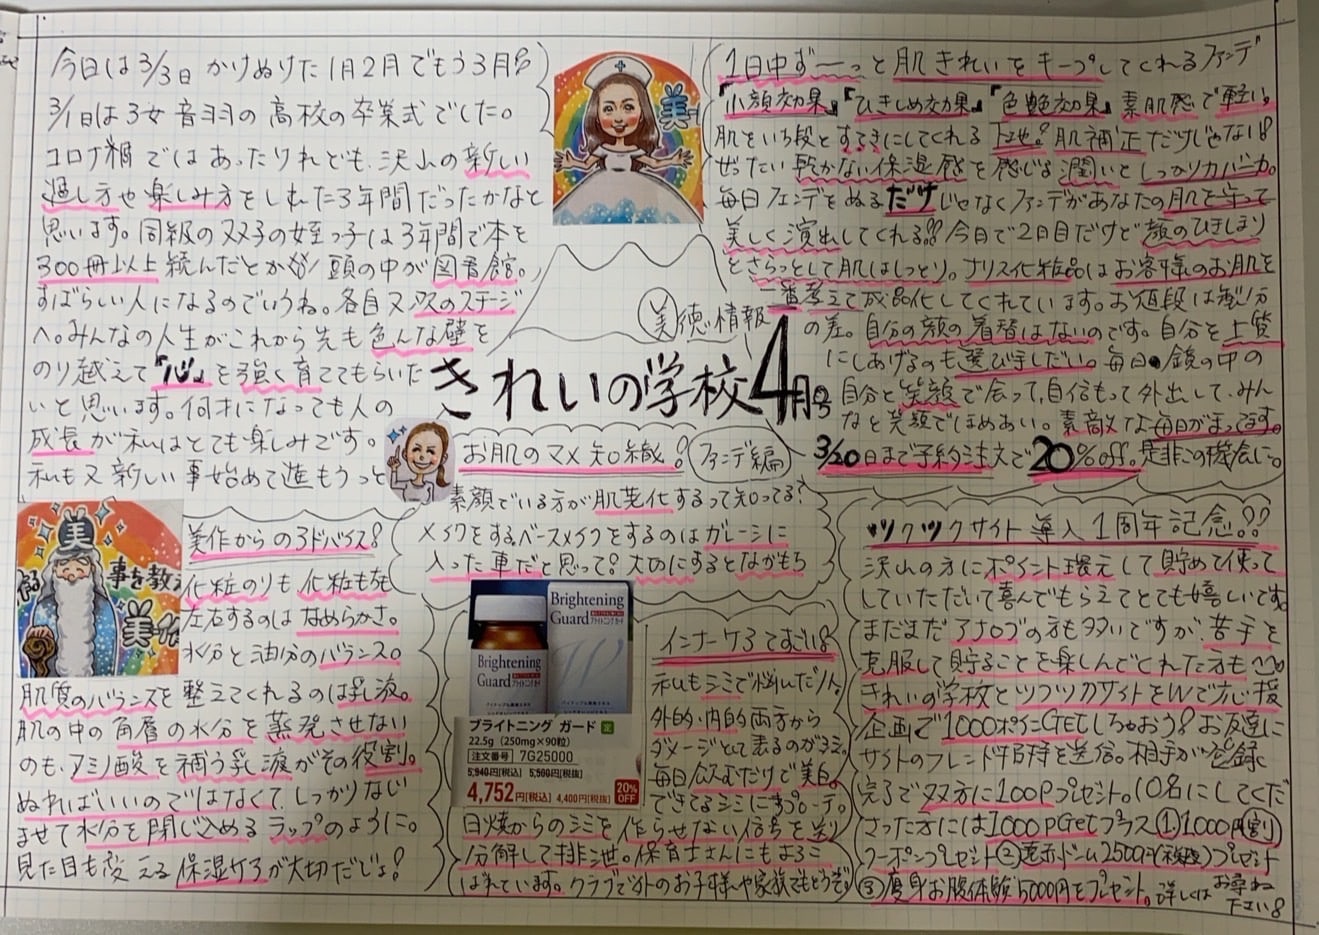 今日は3/3日 かけぬけた1月2月でもう3月!?
3/1日は3女 音羽の高校の卒業式でした。
コロナ禍ではあったけれども、沢山の新しい
過し方や楽しみ方をしれた3年間だったかなと
思います。同級の双子の姪っ子は3年間で本を
300冊以上読んだとか 頭の中が図書館。
すばらしい人になるのでしょうね。各自又次のステージ
へ。みんなの人生がこれから先も色んな壁を
のり越えて『心』を強く育ててもらいた
いと思います。何才になっても人の
成長が私はとても楽しみです。
私も又新しい事始めて進もうっと
美
美徳情報
きれいの学校4月号
1日中ずーっと肌きれいをキープしてくれるファンデ
『小顔効果』『ひきしめ効果』『色艶効果』素肌感で軽い。
肌をいち段とすてきにしてくれる 肌補正だけじゃない!!
ぜったい乾かない保湿感を感じる潤いとしっかりカバー力。
毎日ファンデをぬるだけじゃなくファンデがあなたの肌を守って
美しく演出してくれる!! 今日で2日目だけど顔のひきしまり
とさらっとして肌はしっとり。ナリス化粧品はお客様のお肌を
一番考えて成品化してくれています。お値段は
の差。自分の顔の着替はないのです。自分を上質
にしあげるのも選び手しだい。毎日鏡の中の
自分と笑顔で会って、自信もって外出して、みん
なと笑顔でほめあい。素敵な毎日がまってます。
3/20日まで予約注文で20%off。是非この機会に。
お肌のマメ知織!
ファンデ編
素顔でいる方が肌老化するって知ってる?
メイクをする、ベースメイクをするのはガレージに
入った車だと思って!大切にするとながもち
事を教え
美
美作からのアドバイス!
化粧のりも化粧もちを
左右するのはなめらかさ。
水分と油分のバランス。
肌質のバランスを整えてくれるのは乳液。
肌の中の角層の水分を蒸発させない
のも、アミノ酸を補う乳液がその役割。
ぬればいいのではなくて、しっかりなじ
ませて水分を閉じ込めるラップのように。
見た目も変える保湿ケアが大切だじょ!
Brightening
Guard
ブライトニング ガード
Brightening
Guard
ブライトニング ガード
22.5g（250mg×90粒）
注文番号 7G25000
5,940円[税込] 5,500円[税抜]
4,752円[税込] 4,400円[税抜]
20%
OFF
インナーケアてすごい!!
私もシミで悩んだ1人。
外的・内的両方から
ダメージとして表るのがシミ。
毎日飲むだけで美白。
できてるシミにもアプローチ。
日焼からのシミを作らせない信号を送り
分解して排泄。保育士さんにもよろこ
ばれています。クラブで外のお子様や家族でもどうぞ。
ツクツクサイト導入1周年記念!!
沢山の方にポイント還元して貯めて使って
していただいて喜んでもらえてとても嬉しいです。
まだまだアナログの方も多いですが、苦手を
克服して貯ることを楽しんでくれた方も
きれいの学校とツクツクサイトをWで応援
企画で1000ポイントGETしちゃおう!お友達に
サイトのフレンド招待を送信。相手が登録
完了で双方に100Pプレゼント。10名にしてくだ
さった方には1000PGetプラス①1000円割
クーポンプレゼント②遠赤ドーム2500円(税抜)プレゼント
③痩身お腹体験5000円をプレゼント。詳しくはお尋ね
下さい!!